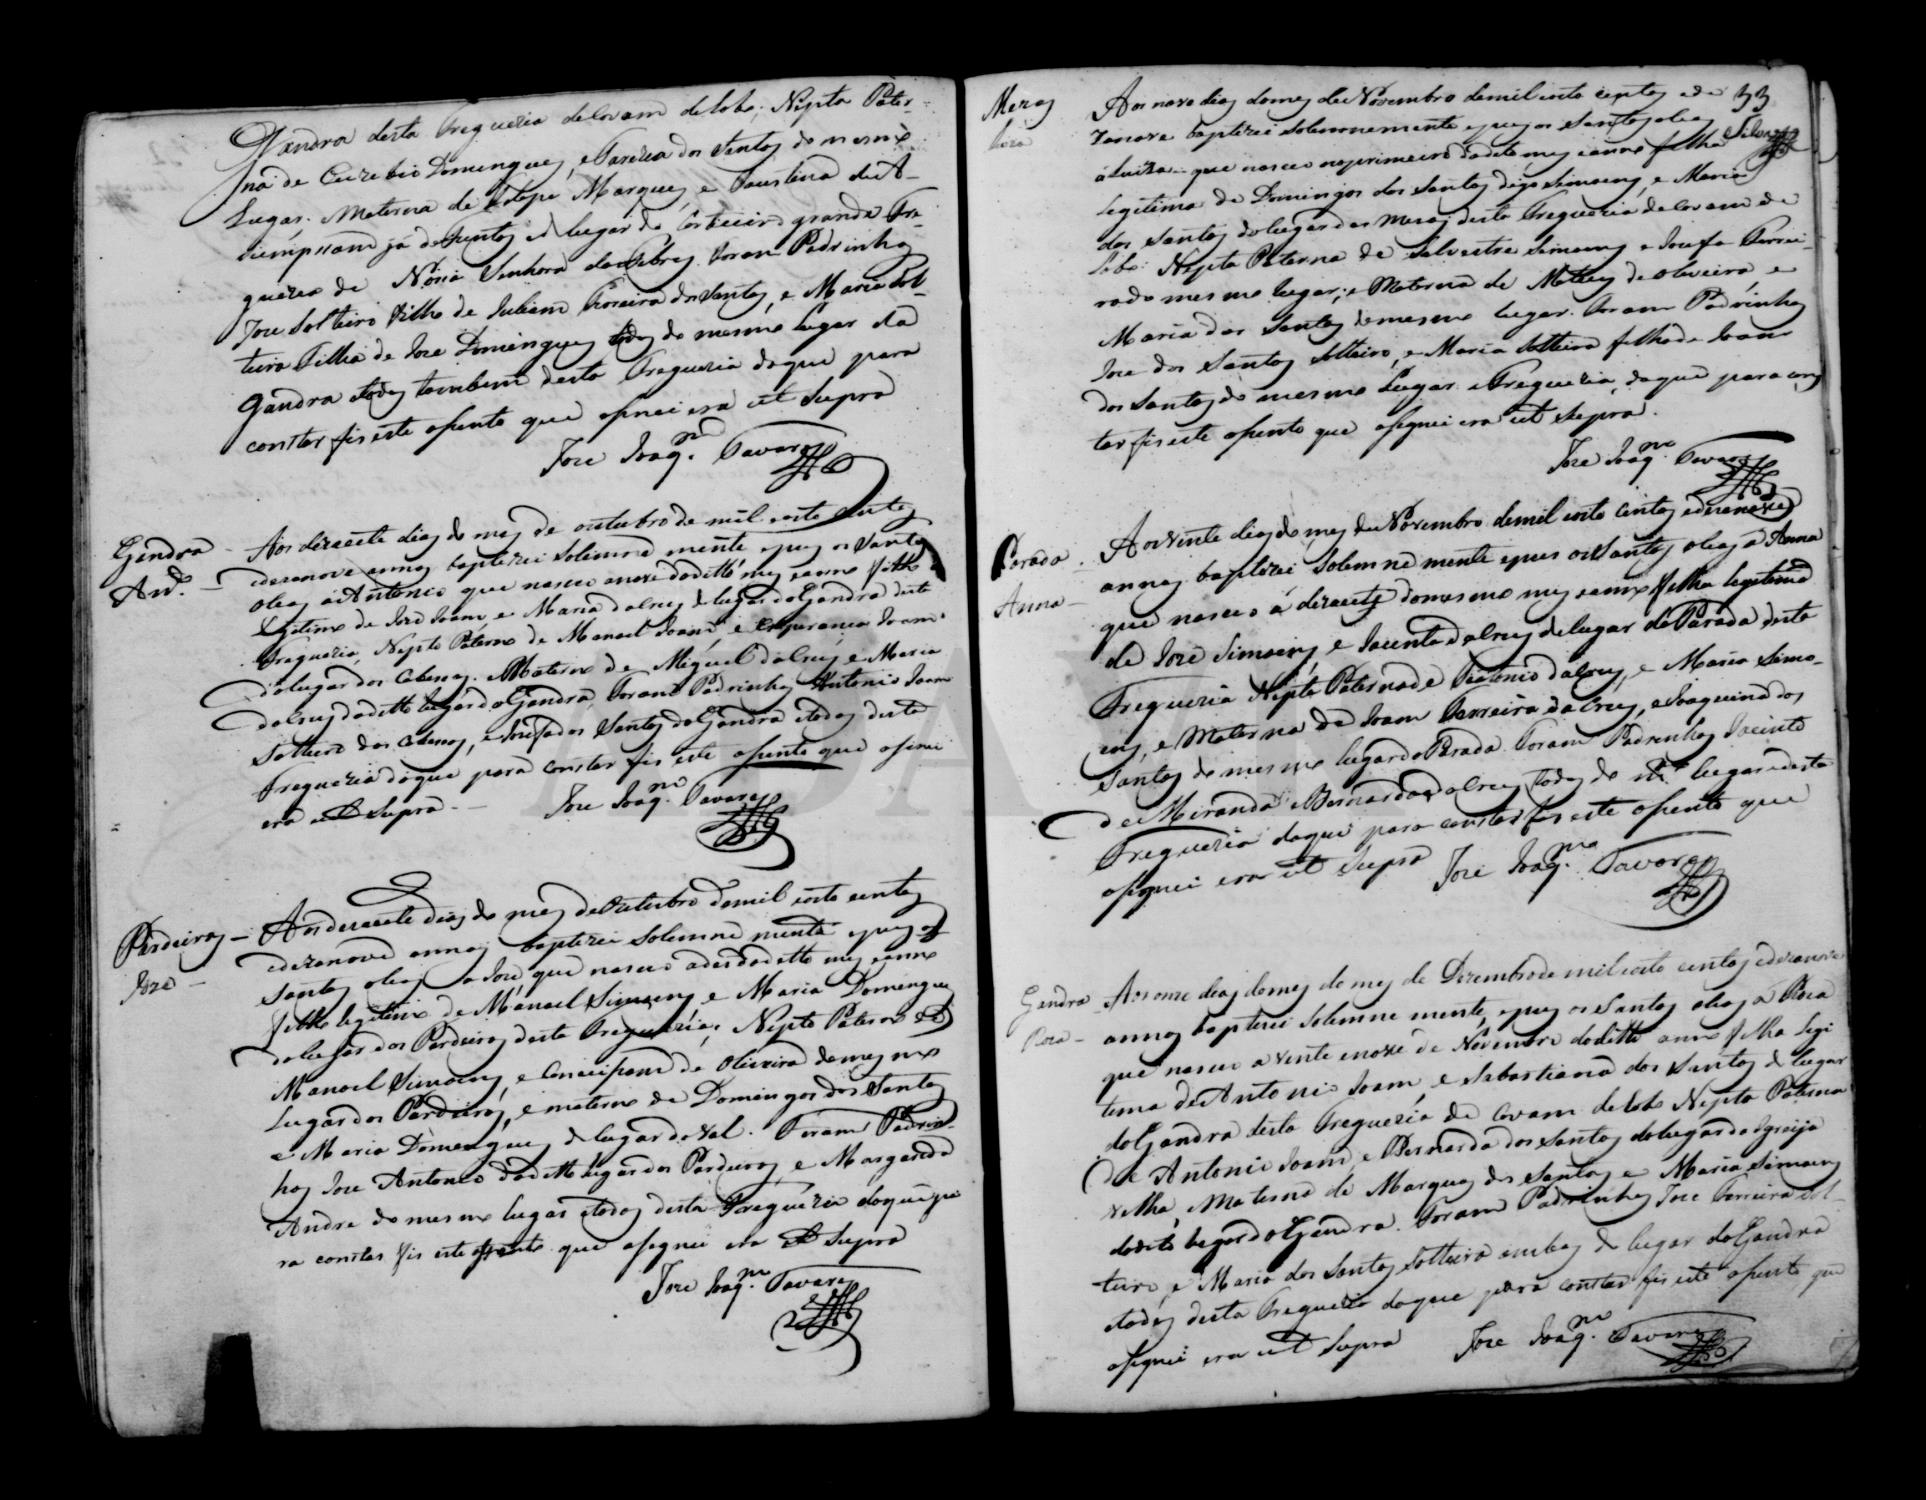 Gandra desta Freguezia de Covam de Lobo, Nepta Pater-
na de Euzebio Domingues, e Tareza dos Santos do mesmo
Lugar. Materna de Marques, e Faustina de A-
ja defuntos do lugar do Corticeiro grande Fre-
guezia de Nosa Senhora das Febres. Foram Padrinhos
Joze Solteiro Filho de Juliam Ferreira dos Santos, e Maria Sol-
teira Filha de Joze Domingues todos do mesmo Lugar da
Gandra todos tambem desta Freguezia doque para
constar fis este asento que asinei era ut supra
Joze Joaq.m Tavares
Gandra
Ant.º
Aos dezacete dias do mes de outubro de mil oito centos
edezanove annos baptizei solemne mente epuz os Santos
oleos a Antonio que nasceo a nove doditto mes eanno filho
legitimo de José Joam, e Maria da Cruz do lugar da Gandra desta
Freguezia, Nepto Paterno de Manoel Joam, e Esperança Joam
do lugar dos Cabesos. Materno de Miguel da Cruz e Maria
da Cruz do ditto lugar da Gandra, Foram Padrinhos Antonio Joam
Solteiro dos Cabesos, e Josefa dos Santos da Gandra etodos desta
Freguezia doque para constar fis este asento que asinei
era ut supra.
Joze Joaq.m Tavares
Pardeiros
Joze
Aos dezacete dias do mes de Outubro de mil oito centos
edezanove annos baptizei solemne mente epuz os
Santos oleos a José que nasceo a des doditto mes eanno
filho legitimo de Manoel Simoens e Maria Domingues
do lugar dos Pardeiros desta Freguezia, Nepto Paterno de
Manoel Simoens, e Conceipsam de Oliveira do mesmo
Lugar dos Pardeiros, e materno de Domingos dos Santos
e Maria Domingues do lugar do Val. Foram Padrin-
hos Joze Antonio do ditto lugar dos Pardeiros e Margarida
Andre do mesmo lugar etodos desta Freguezia doque pa
ra constar fis este asento que asignei era ut supra
Joze Joaq.m Tavares
33
Mezas
Luiza
Aos nove dias do mes de Novembro de mil oito centos ede
zanove baptizei solemnemente epuz os Santos oleos
a Luiza que nasceo no primeiro do dito mes eanno filha
legitima de Domingos dos Santos digo Simoens, e Maria
dos Santos do lugar das Mezas desta Freguezia de Covam de
Lobo. Nepta Paterna de Silvestre Simoens e Josefa Ferrei-
ra do mesmo lugar, e Materna de Matheus de Oliveira e
Maria dos Santos do mesmo lugar. Foram Padrinhos
Joze dos Santos Solteiro, e Maria Solteira filha de Joam
dos Santos do mesmo Lugar e Freguezia, doque para cons
tar fis este asento que asignei era ut supra.
Joze Joaq.m Tavares
Parada
Anna
Aos vinte dias do mes de Novembro de mil oito centos edezanove
annos baptizei solemne mente epus os Santos oleos a Anna
que nasceo a dezacete do mesmo mes eanno filha legitima
de José Simoens, e Jacinta da Cruz do lugar da Parada desta
Freguezia Nepta Paterna de da Cruz, e Maria Simo-
ens, e Materna de Joam Ferreira da Cruz, e Joaquina dos
Santos do mesmo lugar da Parada. Foram Padrinhos Jacinto
de Miranda e Bernarda da Cruz todos do lugar edesta
Freguezia doque para constar fis este asento que
asignei era ut supra
Joze Joaq.m Tavares
Gandra
Roza
Aos onze dias do mes do mes de Dezembro de mil oito centos edezanove
annos baptizei solemne mente, epus os Santos oleos a Roza
que nasceo a vente enove de Novembro doditto anno filha legi
tima de Antonio Joam, e Sebastiana dos Santos do lugar
da Gandra desta Freguezia de Covam de Lobo Nepta Paterna
de Antonio Joam, e Bernarda dos Santos do lugar da Igreija
velha, Materna de Marques dos Santos e Maria Simoens
dodito lugar da Gandra. Foram Padrinhos Joze Ferreira Sol-
teiro, e Maria dos Santos Solteira ambos do lugar da Gandra
etodos desta Freguezia doque para constar fis este asento que
asignei era ut supra
Joze Joaq.m Tavares